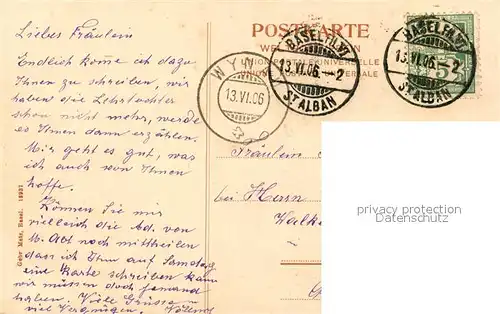 POSTKARTE
WELTPOSTVEREIN
UNION POSTALE UNIVERSELLE
BASEL FAVI
13.VI.06.-2
ST ALBAN
BASEL FAVI
13.VI.06.-2
ST ALBAN
WYN
13.VI.06
5
Liebes Fräulein
Endlich kome ich dazu
Ihnen zu schreiben, wir
haben die Lehrtochter
schon nicht mehr, werde
es Ihnen dann erzählen.
Mir geht es gut, was
ich auch von Ihnen
hoffe.
Können Sie mir
vielleicht die Ad. von
M. Abt noch mittheilen
dass ich Ihm auf Samstag
eine Karte schreiben kann
wir müssen doch jemand
haben. Viele Grüsse
viel Vergnügen.
Fräulein
bei Herrn
Walke
Gebr Metz, Basel. 18931
privacy protection
watermark